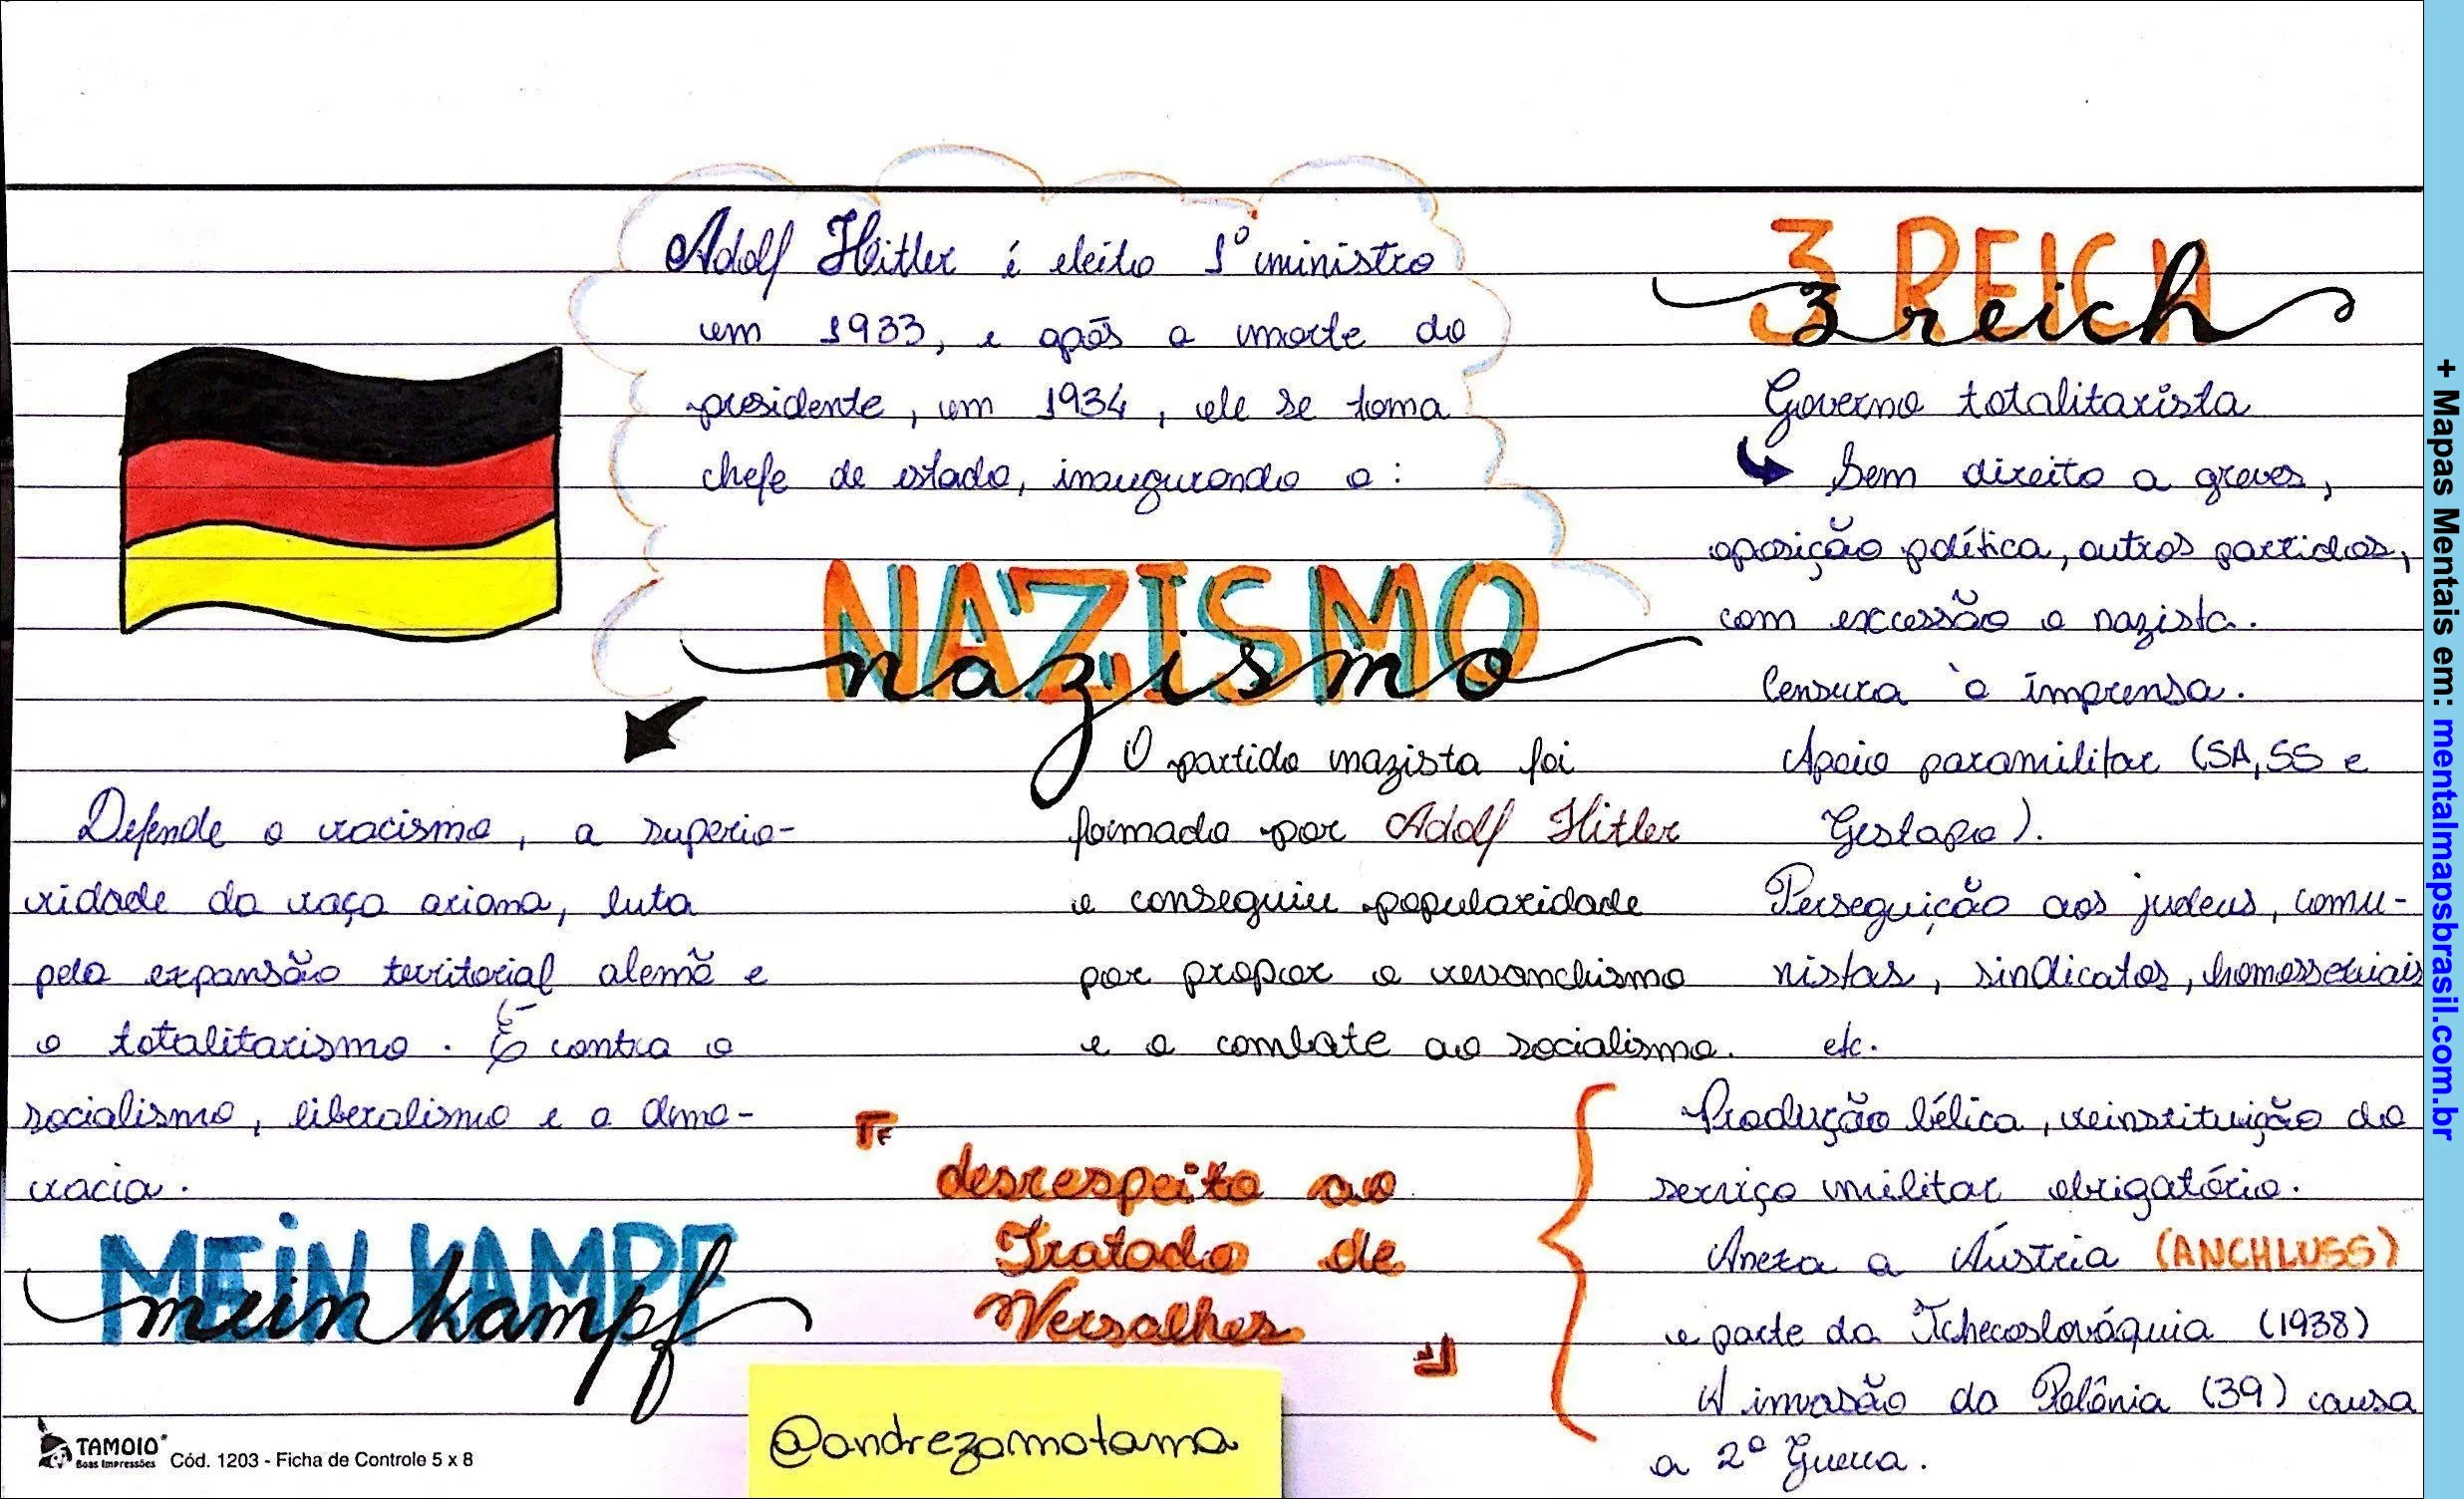 Adolf Hitler é eleito 1º ministro
em 1933, e após a morte do
presidente, em 1934, ele se torna
chefe de estado, inaugurando o:
NAZISMO
nazismo
Defende o racismo, a superio-
ridade da raça ariana, luta
pela expansão territorial alemã e
o totalitarismo. É contra o
socialismo, liberalismo e a demo-
cracia.
MEIN KAMPF
mein kampf
O partido nazista foi
formado por Adolf Hitler
e conseguiu popularidade
por propor o revanchismo
e o combate ao socialismo.
desrespeito ao
Tratado de
Versalhes
3 REICH
3 reich
Governo totalitarista
Sem direito a greves,
oposição política, outros partidos,
com excessão o nazista.
Censura à imprensa.
Apoio paramilitar (SA, SS e
Gestapo).
Perseguição aos judeus, comu-
nistas, sindicatos, homossexuais
etc.
Produção bélica, reinstituição do
serviço militar obrigatório.
Anexa a Áustria (ANCHLUSS)
e parte da Tchecoslováquia (1938)
A invasão da Polônia (39) causa
a 2ª Guerra.
@andrezamotama
TAMOIO
Boas Impressões
Cód. 1203 - Ficha de Controle 5 x 8
+ Mapas Mentais em: mentalmapsbrasil.com.br